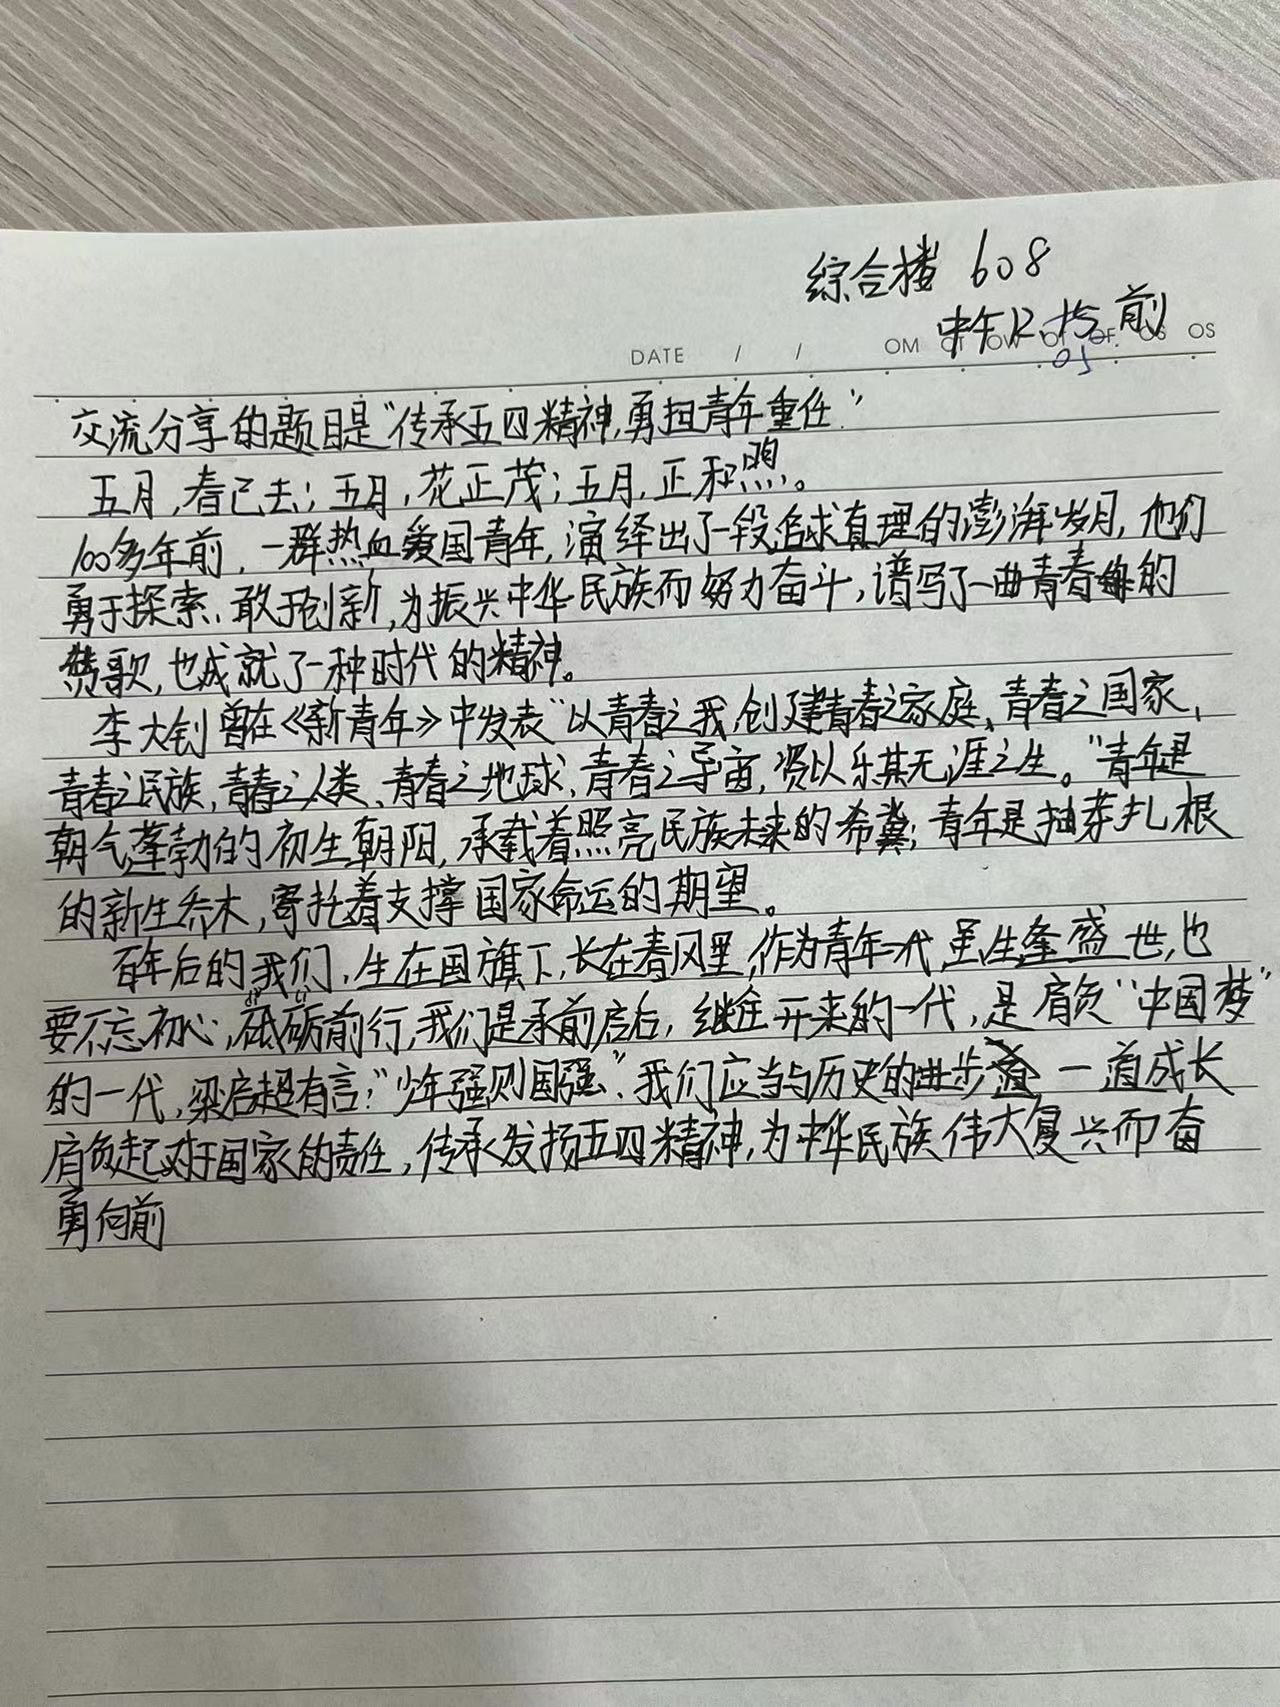 综合楼 608
中午12.15前
05
DATE / /
交流分享的题目是“传承五四精神,勇担青年重任”
五月,春已去;五月,花正茂;五月,正和煦。
100多年前,一群热血爱国青年,演绎出了一段追求真理的澎湃岁月,他们
勇于探索、敢于创新,为振兴中华民族而努力奋斗,谱写了一曲青春的
赞歌,也成就了一种时代的精神。
李大钊曾在《新青年》中发表“以青春之我,创建青春之家庭、青春之国家、
青春之民族,青春之人类、青春之地球、青春之宇宙,资以乐其无涯之生。”青年是
朝气蓬勃的初生朝阳,承载着照亮民族未来的希冀;青年是抽芽扎根
的新生乔木,寄托着支撑国家命运的期望。
百年后的我们,生在国旗下,长在春风里,作为青年一代,虽生逢盛世,也
要不忘初心,砥砺前行,我们是承前启后,继往开来的一代,是肩负“中国梦”
的一代,梁启超有言:“少年强则国强”,我们应当与历史的进步 一道成长
肩负起对于国家的责任,传承发扬五四精神,为中华民族伟大复兴而奋
勇向前